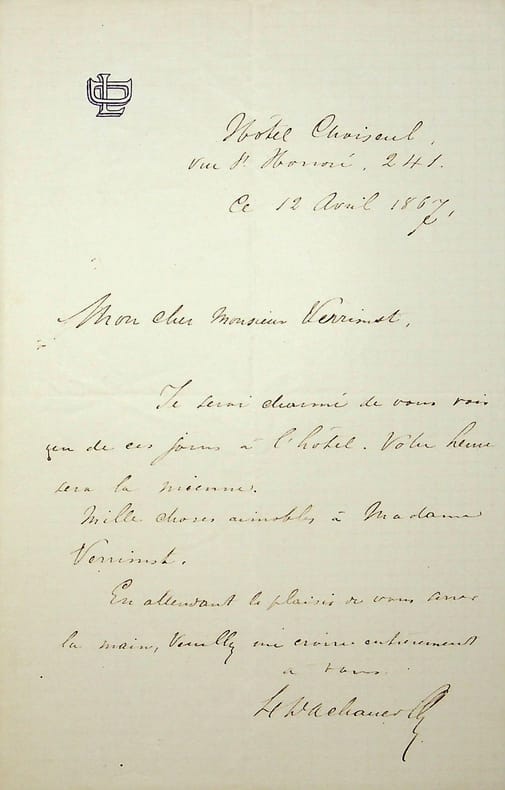 Hôtel Choiseul,
rue St Honoré, 241.
Ce 12 Avril 1867,
Mon cher Monsieur Verrimst,
Je serai charmé de vous voir
un de ces jours à l'hôtel. Votre heure
sera la mienne.
Mille choses aimables à Madame
Verrimst.
En attendant le plaisir de vous serrer
la main, Veuillez me croire entièrement
à vous.